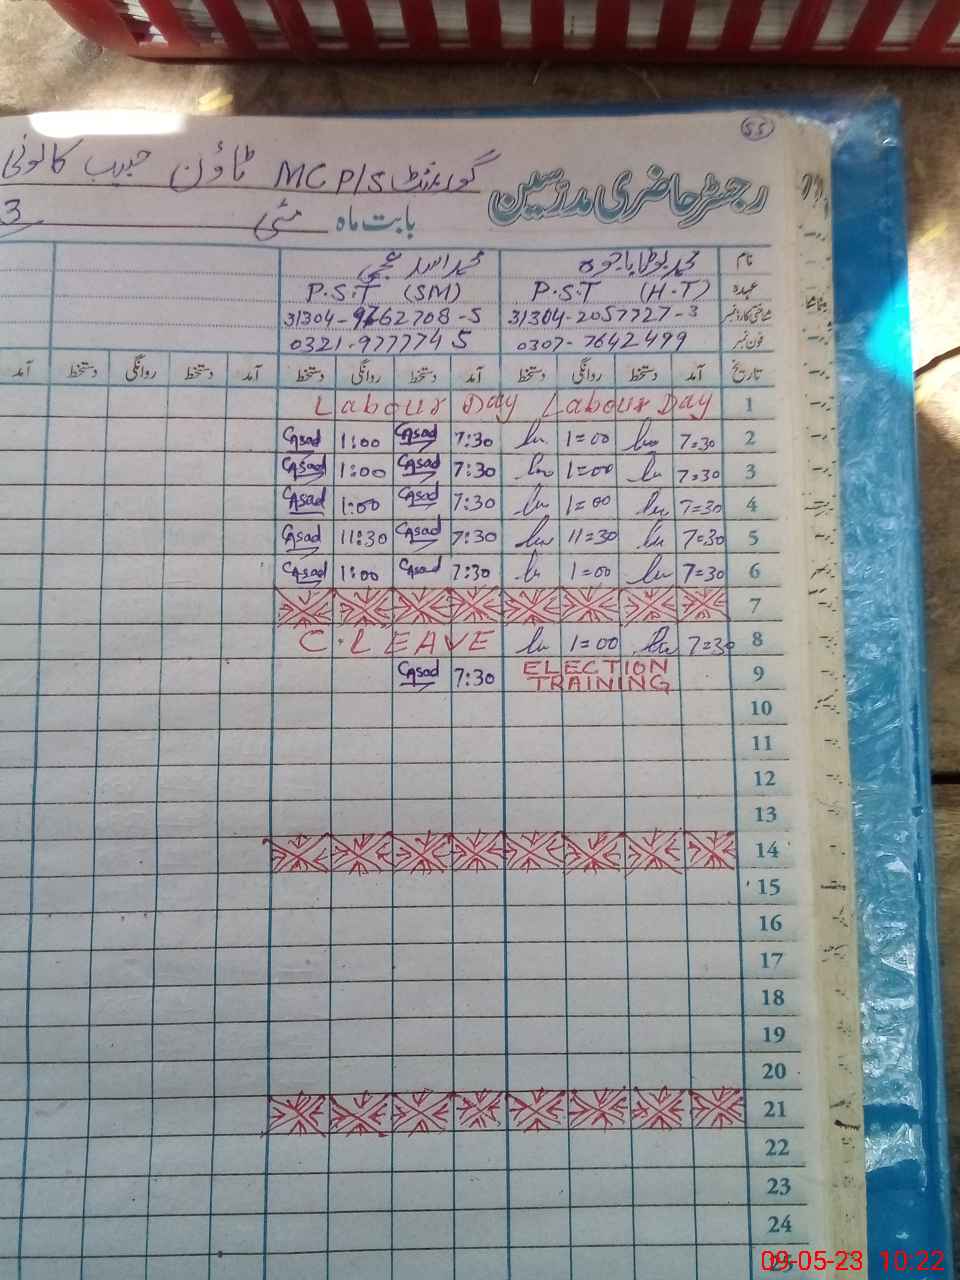 55
رجسٹر حاضری مدرسین گورنمنٹ MC P/S ٹاؤن حبیب کالونی
بابت ماہ مئی 3
نام محمد محمد اسد
عہدہ P.S.T (H.T) P.S.T (SM)
شناختی کارڈ نمبر 31304-2057727-3 31304-9662708-5
فون نمبر 0307-7642499 0321-9777745
تاریخ آمد دستخط روانگی دستخط آمد دستخط روانگی دستخط آمد دستخط روانگی دستخط آمد
1 Labour Day Labour Day
2 7=30 1=00 7:30 Asad 1:00 Asad
3 7=30 1=00 7:30 Asad 1:00 Asad
4 7=30 1=00 7:30 Asad 1:00 Asad
5 7=30 11=30 7:30 Asad 11:30 Asad
6 7=30 1=00 7:30 Asad 1:00 Asad
7
8 7=30 1=00 C.LEAVE
9 ELECTION TRAINING 7:30 Asad
10
11
12
13
14
15
16
17
18
19
20
21
22
23
24
25
09-05-23 10:22